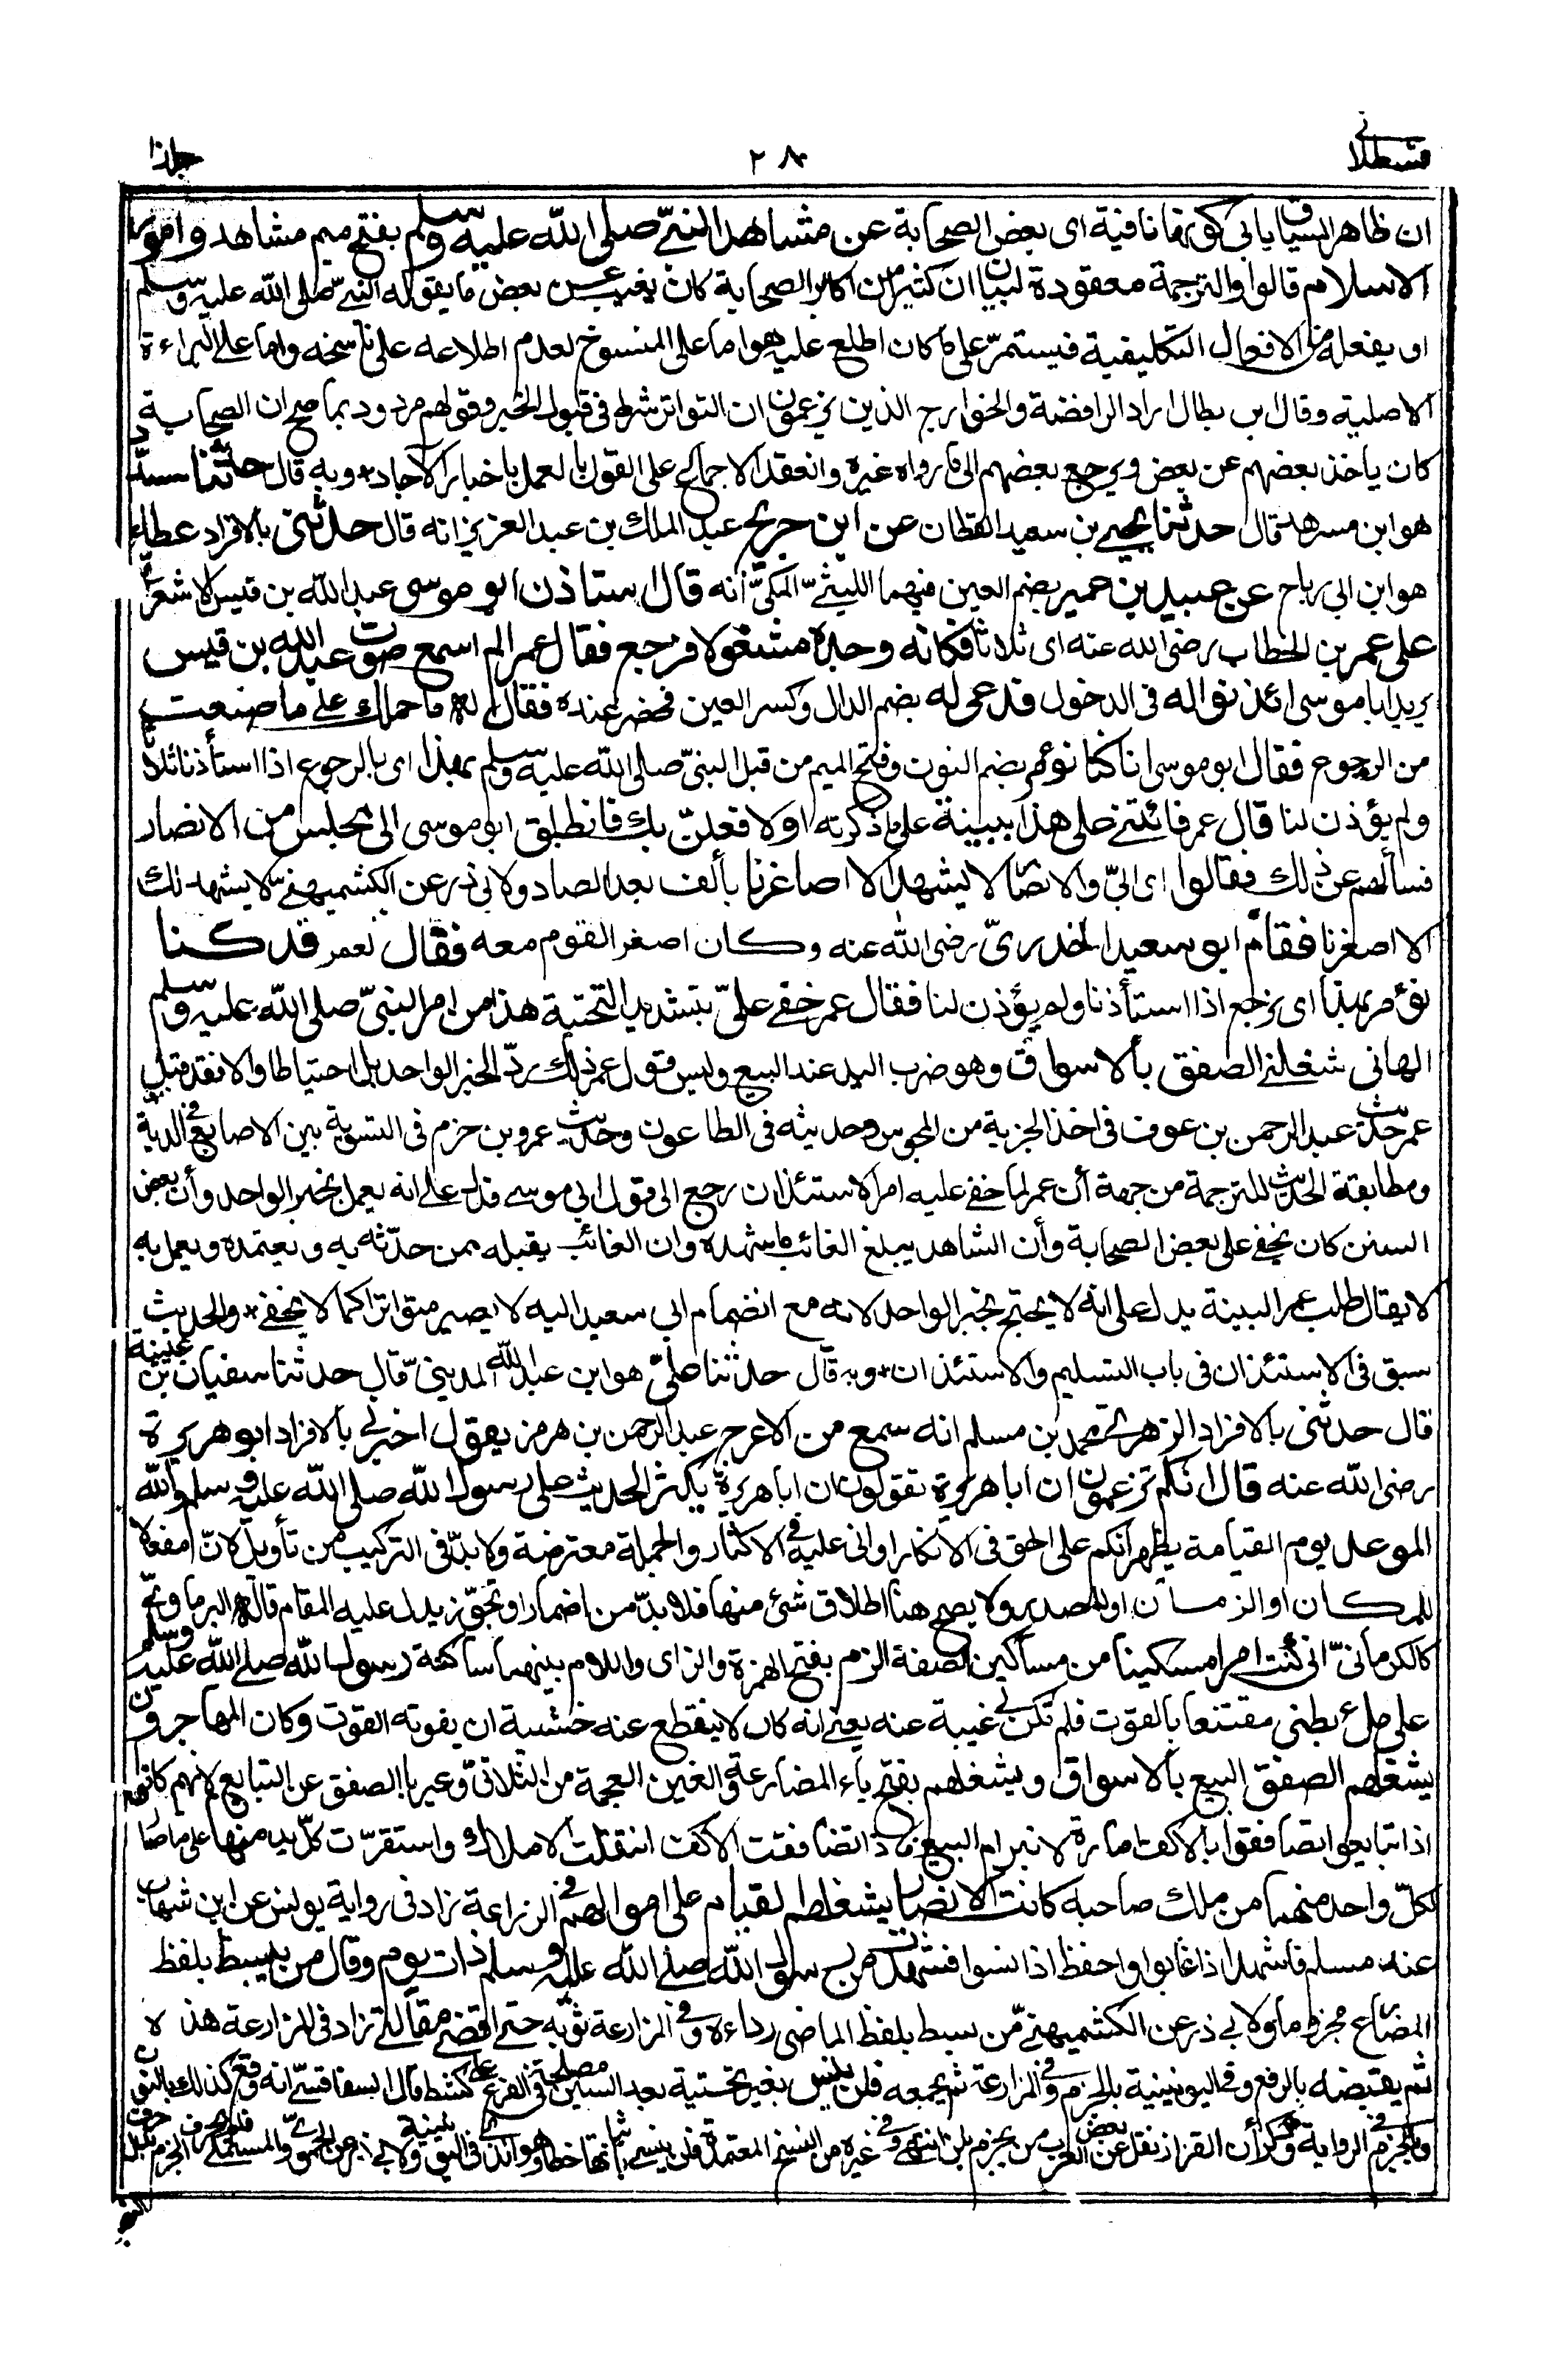 قسطلانى
٢٨
جلد ١٠
ان ظاهر السياق يابى كونها نافية اى بعض الصحابة عن مشاهد النبىّ صلى الله عليه وسلم بفتح ميم مشاهد وامور
الاسلام قالوا والترجمة معقودة لبيان ان كثيرا من اكابر الصحابة كان يغيب عن بعض ما يقوله النبىّ صلى الله عليه وسلم
او يفعله من الافعال التكليفية فيستمرّ على ما كان اطلع عليه هو اما على المنسوخ لعدم اطلاعه على ناسخه واما على البراءة
الاصلية وقال بن بطال اراد الرافضة والخوارج الذين يزعمون ان التواتر شرط فى قبول الخبر وقولهم مردود بما صح ان الصحابة
كان ياخذ بعضهم عن بعض ويرجع بعضهم الى ما رواه غيره وانعقد الاجماع على القول بالعمل باخبار الآحاد * وبه قال حدثنا مسدد
هو ابن مسرهد قال حدثنا يحيى بن سعيد القطان عن ابن جريج عبد الملك بن عبد العزيز انه قال حدثنى بالافراد عطاء
هو ابن ابى رباح عن عبيد بن عمير بضم العين فيهما الليثىّ المكىّ انه قال استاذن ابو موسى عبد الله بن قيس الاشعرىّ
على عمر بن الخطاب رضى الله عنه اى ثلاثا فكانه وجده مشغولا فرجع فقال عمر الم اسمع صوت عبد الله بن قيس
يريد ابا موسى ائذنوا له فى الدخول فدعى له بضم الدال وكسر العين فحضر عنده فقال له ما حملك على ما صنعت
من الرجوع فقال ابو موسى انا كنا نؤمر بضم النون وفتح الميم من قبل النبىّ صلى الله عليه وسلم بهذا اى بالرجوع اذا استأذنا ثلاثا
ولم يؤذن لنا قال عمر فائتنى على هذا ببينة على ما ذكرته او لافعلنّ بك فانطلق ابو موسى الى مجلس من الانصار
فسألهم عن ذلك فقالوا اى ابىّ والانصار لا يشهد الا اصاغرنا بألف بعد الصاد ولابى ذر عن الكشميهنىّ لا يشهد لك
الا اصغرنا فقام ابو سعيد الخدرىّ رضى الله عنه وكان اصغر القوم معه فقال لعمر قد كنا
نؤمر بهذا اى نرجع اذا استأذنا ولم يؤذن لنا فقال عمر خفى علىّ بتشديد التحتية هذا من امر النبىّ صلى الله عليه وسلم
الهانى شغلنى الصفق بالاسواق وهو ضرب اليد عند البيع وليس قول عمر ذلك ردّ الخبر الواحد بل احتياطا والا فقد قبل
عمر حديث عبد الرحمن بن عوف فى اخذ الجزية من المجوس وحديثه فى الطاعون وحديث عمرو بن حزم فى التسوية بين الاصابع فى الدية
ومطابقة الحديث للترجمة من جهة أن عمر لما خفى عليه امر الاستئذان رجع الى قول ابى موسى فدل على انه يعمل بخبر الواحد وأن بعض
السنن كان يخفى على بعض الصحابة وأن الشاهد يبلغ الغائب ما شهده وان الغائب يقبله ممن حدّثه به ويعتمده ويعمل به
لا يقال طلب عمر البينة يدل على انه لا يحتج بخبر الواحد لانه مع انضمام ابى سعيد اليه لا يصير متواترا كما لا يخفى * والحديث
سبق فى الاستئذان فى باب التسليم والاستئذان * وبه قال حدثنا علىّ هو ابن عبد الله المدينىّ قال حدثنا سفيان بن عيينة
قال حدثنى بالافراد الزهرى محمد بن مسلم انه سمع من الاعرج عبد الرحمن بن هرمز يقول اخبرنى بالافراد ابو هريرة
رضى الله عنه قال انكم تزعمون ان ابا هريرة تقولون ان ابا هريرة يكثر الحديث على رسول الله صلى الله عليه وسلم والله
الموعد يوم القيامة يظهر انكم على الحق فى الانكار او انى عليه فى الاكثار والجملة معترضة ولا بدّ فى التركيب من تأويل لان مفعلا
للمكان او الزمان او للمصدر ولا يصح هنا اطلاق شئ منها فلا بدّ من اضمار او تجوّز يدل عليه المقام قاله البرماوىّ
كالكرمانىّ انى كنت امرأ مسكينا من مساكين الصفة الزم بفتح الهمزة والزاى واللام بينهما ساكنة رسول الله صلى الله عليه وسلم
على ملء بطنى مقتنعا بالقوت فلم تكن لى غيبة عنه يعنى انه كان لا ينقطع عنه خشية ان يفوته القوت وكان المهاجرون
يشغلهم الصفق البيع بالاسواق ويشغلهم بفتح ياء المضارعة والغين المعجمة من الثلاثىّ وعبر بالصفق عن التبايع لانهم كانوا
اذا تبايعوا تصافقوا بالاكف امارة لانبرام البيع فاذا تصافقت الاكف انتقلت الاملاك واستقرّت كلّ يد منها على ما صار
لكلّ واحد منهما من ملك صاحبه كانت الانصار يشغلهم القيام على اموالهم فى الزراعة زاد فى رواية يونس عن ابن شهاب
عند مسلم فاشهد اذا غابوا واحفظ اذا نسوا فشهدت من رسول الله صلى الله عليه وسلم ذات يوم وقال من يبسط بلفظ
المضارع مجزوما ولابى ذر عن الكشميهنى من بسط بلفظ الماضى رداءه وفى المزارعة ثوبه حتى اقضى مقالتى زاد فى المزارعة هذه
ثم يقبضه بالرفع وفى اليونينية بالجزم وفى المزارعة ثم يجمعه فلن ينس بغير تحتية بعد السين مصلحة فى الفرع على كشط قال السفاقسىّ انه وقع كذلك بالنون